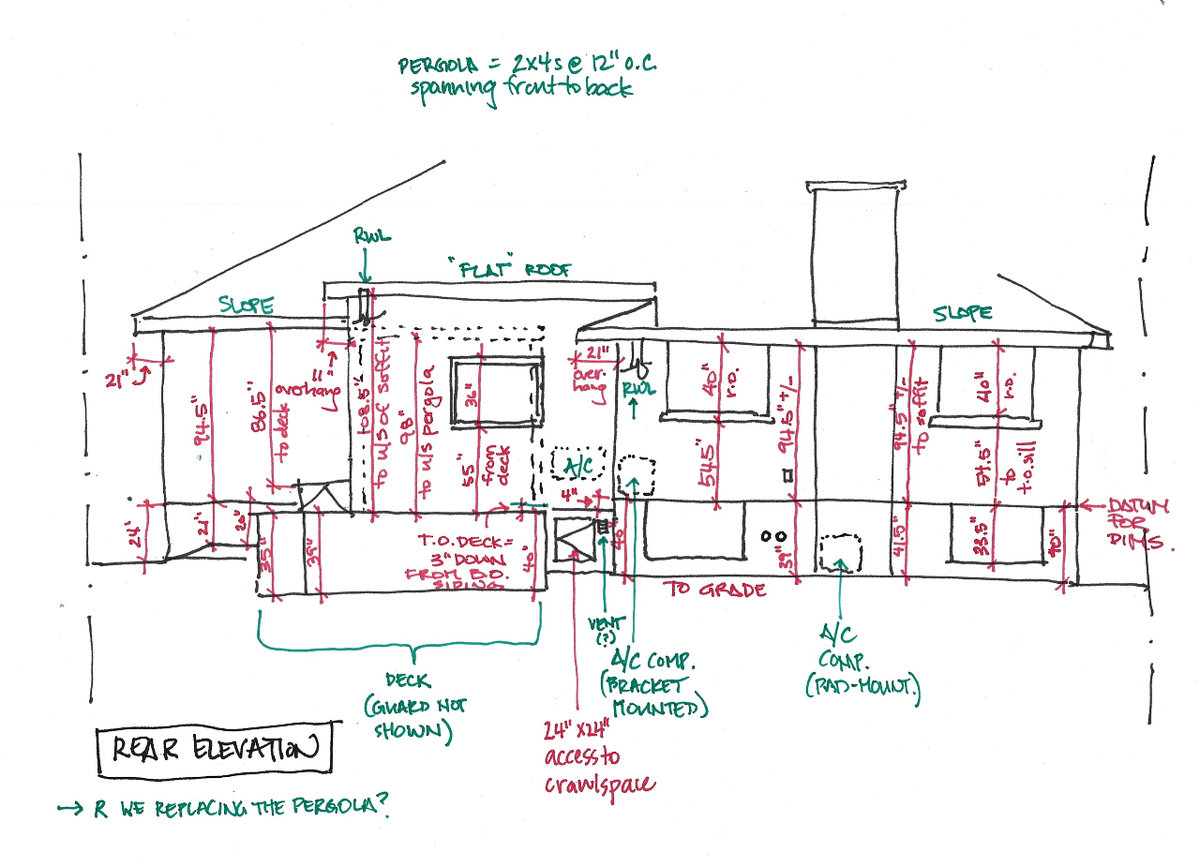 PERGOLA = 2x4s @ 12" o.c.
spanning front to back
RWL
"FLAT" ROOF
SLOPE
SLOPE
21"
94.5"
86.5"
to deck
overhang
11"
108.5"
to u/s of soffit
98"
to u/s pergola
36"
55"
from
deck
21"
over-
hang
RWL
40"
r.o.
54.5"
94.5" +/-
94.5" +/-
to soffit
40"
r.o.
54.5"
to
t.o. sill
A/C
4"
24"
21"
20"
35"
39"
T.O. DECK =
3" DOWN
FROM B.O.
SIDING
40"
40"
39"
41.5"
33.5"
40"
DATUM
FOR
DIMS.
TO GRADE
VENT
(?)
A/C COMP.
(BRACKET
MOUNTED)
A/C
COMP.
(PAD-MOUNT.)
DECK
(GUARD NOT
SHOWN)
24" x 24"
access to
crawlspace
REAR ELEVATION
→ R WE REPLACING THE PERGOLA?